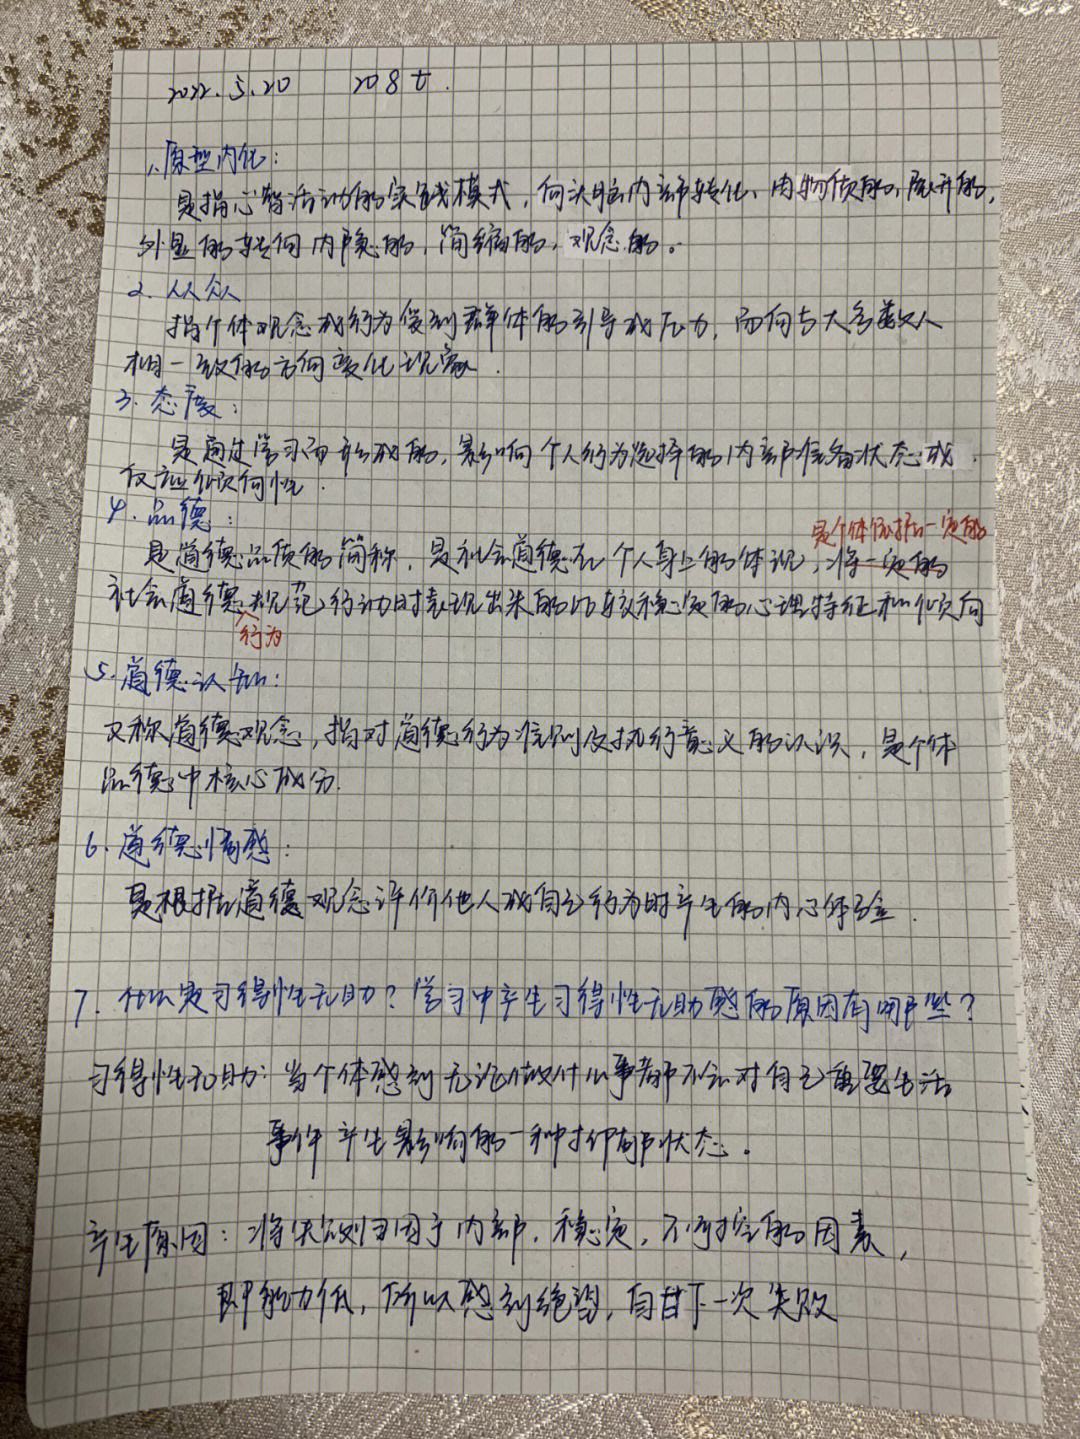 2022.5.20 208t.
1.原型内化:
是指心智活动的实践模式,向头脑内部转化、由物质的,展开的,
外显的转向内隐的,简缩的,观念的。
2.从众
指个体观念或行为受到群体的引导或压力,而向与大多数人
相一致的方向变化现象.
3.态度:
是通过学习而形成的,影响个人行为选择的内部准备状态或
反应倾向性.
4.品德:
是个体依据一定的
是道德品质的简称,是社会道德在个人身上的体现,将一定的
社会道德规范行动时表现出来的比较稳定的心理特征和倾向
行为
5.道德认知:
又称道德观念,指对道德行为准则及执行意义的认识,是个体
品德中核心成分.
6.道德情感:
是根据道德观念评价他人或自己行为时产生的内心体验.
7.什么是习得性无助?学习中产生习得性无助感的原因有哪些?
习得性无助:当个体感到无论做什么事都不会对自己重要生活
事件产生影响的一种抑郁状态.
产生原因:将失败归因于内部,稳定,不可控的因素,
即能力低,所以感到绝望,自甘下一次失败